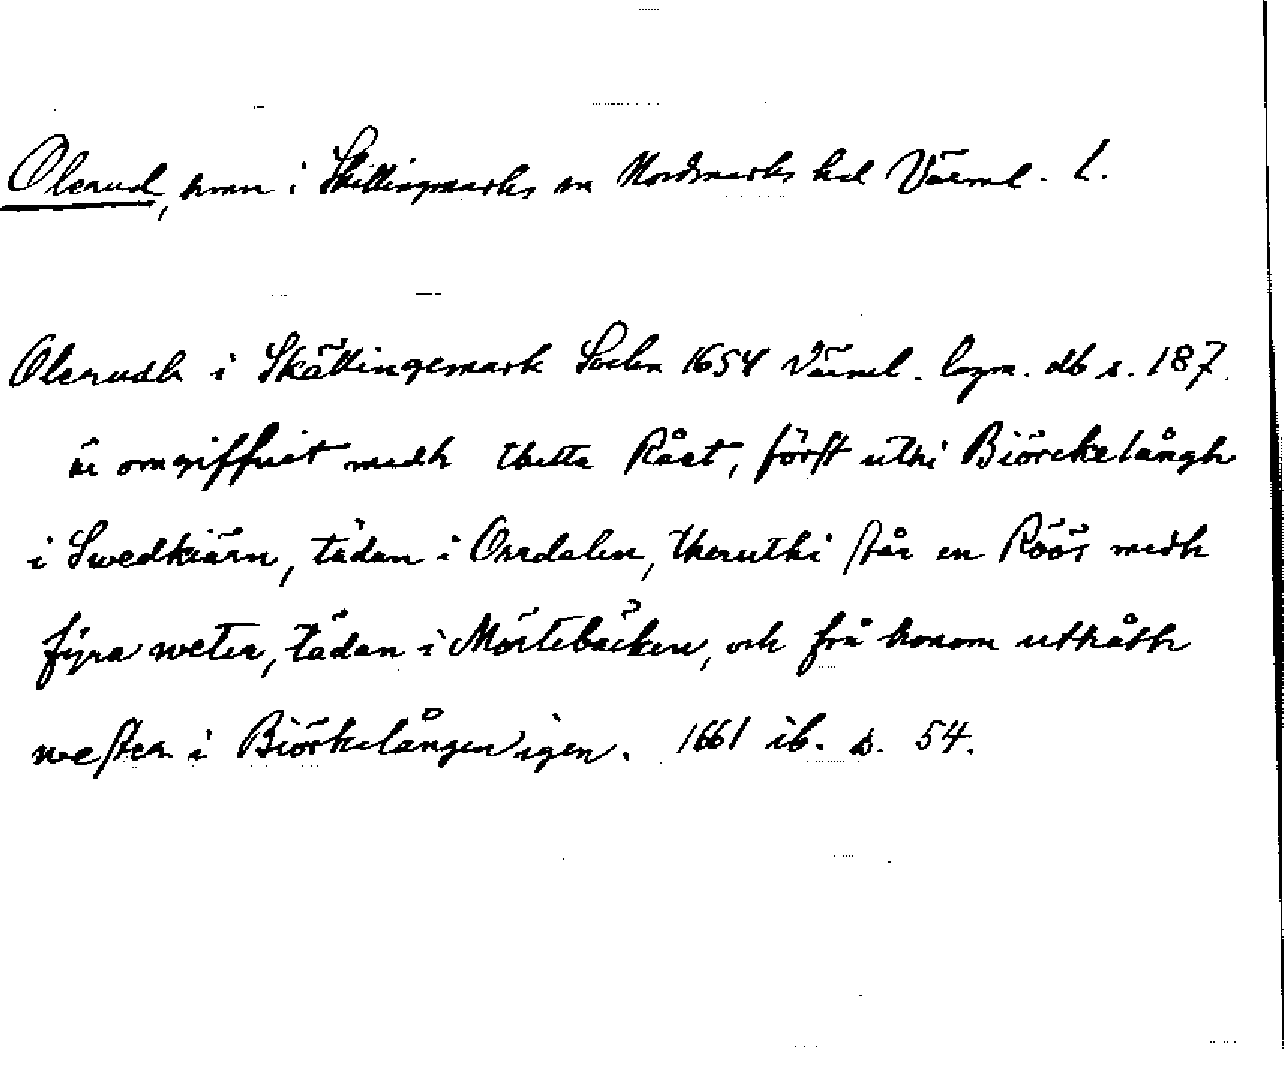 Olerud, hmn i Skillingmarks sn Nordmarks hd Värml. L.
Olerudh i Skällingemark Sochn 1654 Värml. lagm. db s. 187.
är omgiffuit medh thetta Råat, först uthi Biörckelångh
i Swedkiärn, tädan i Orrdalen, theruthi står en Röös medh
fÿra weter, tädan i Mörtebäcken, och frå honom uthåth
wester i Biörkelången igen. 1661 ib. s. 54.